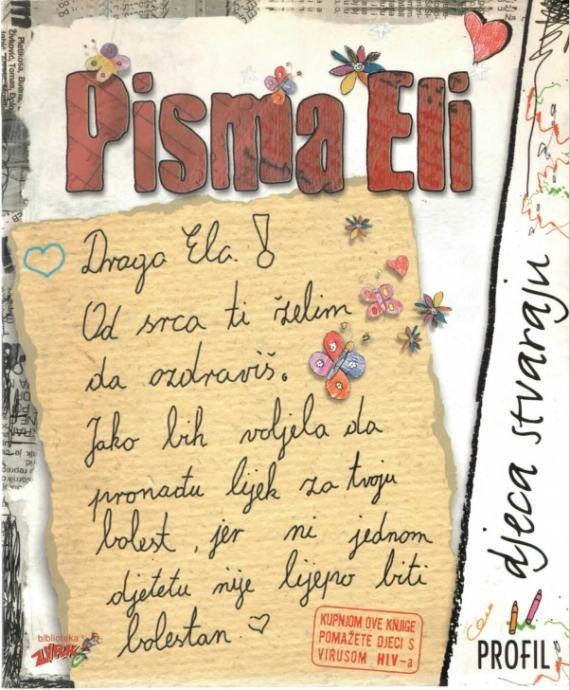 Pisma Eli
Draga Ela!
Od srca ti želim
da ozdraviš.
Jako bih voljela da
pronađu lijek za tvoju
bolest, jer ni jednom
djetetu nije lijepo biti
bolestan.
KUPNJOM OVE KNJIGE
POMAŽETE DJECI S
VIRUSOM HIV-a
biblioteka
djeca stvaraju
PROFIL